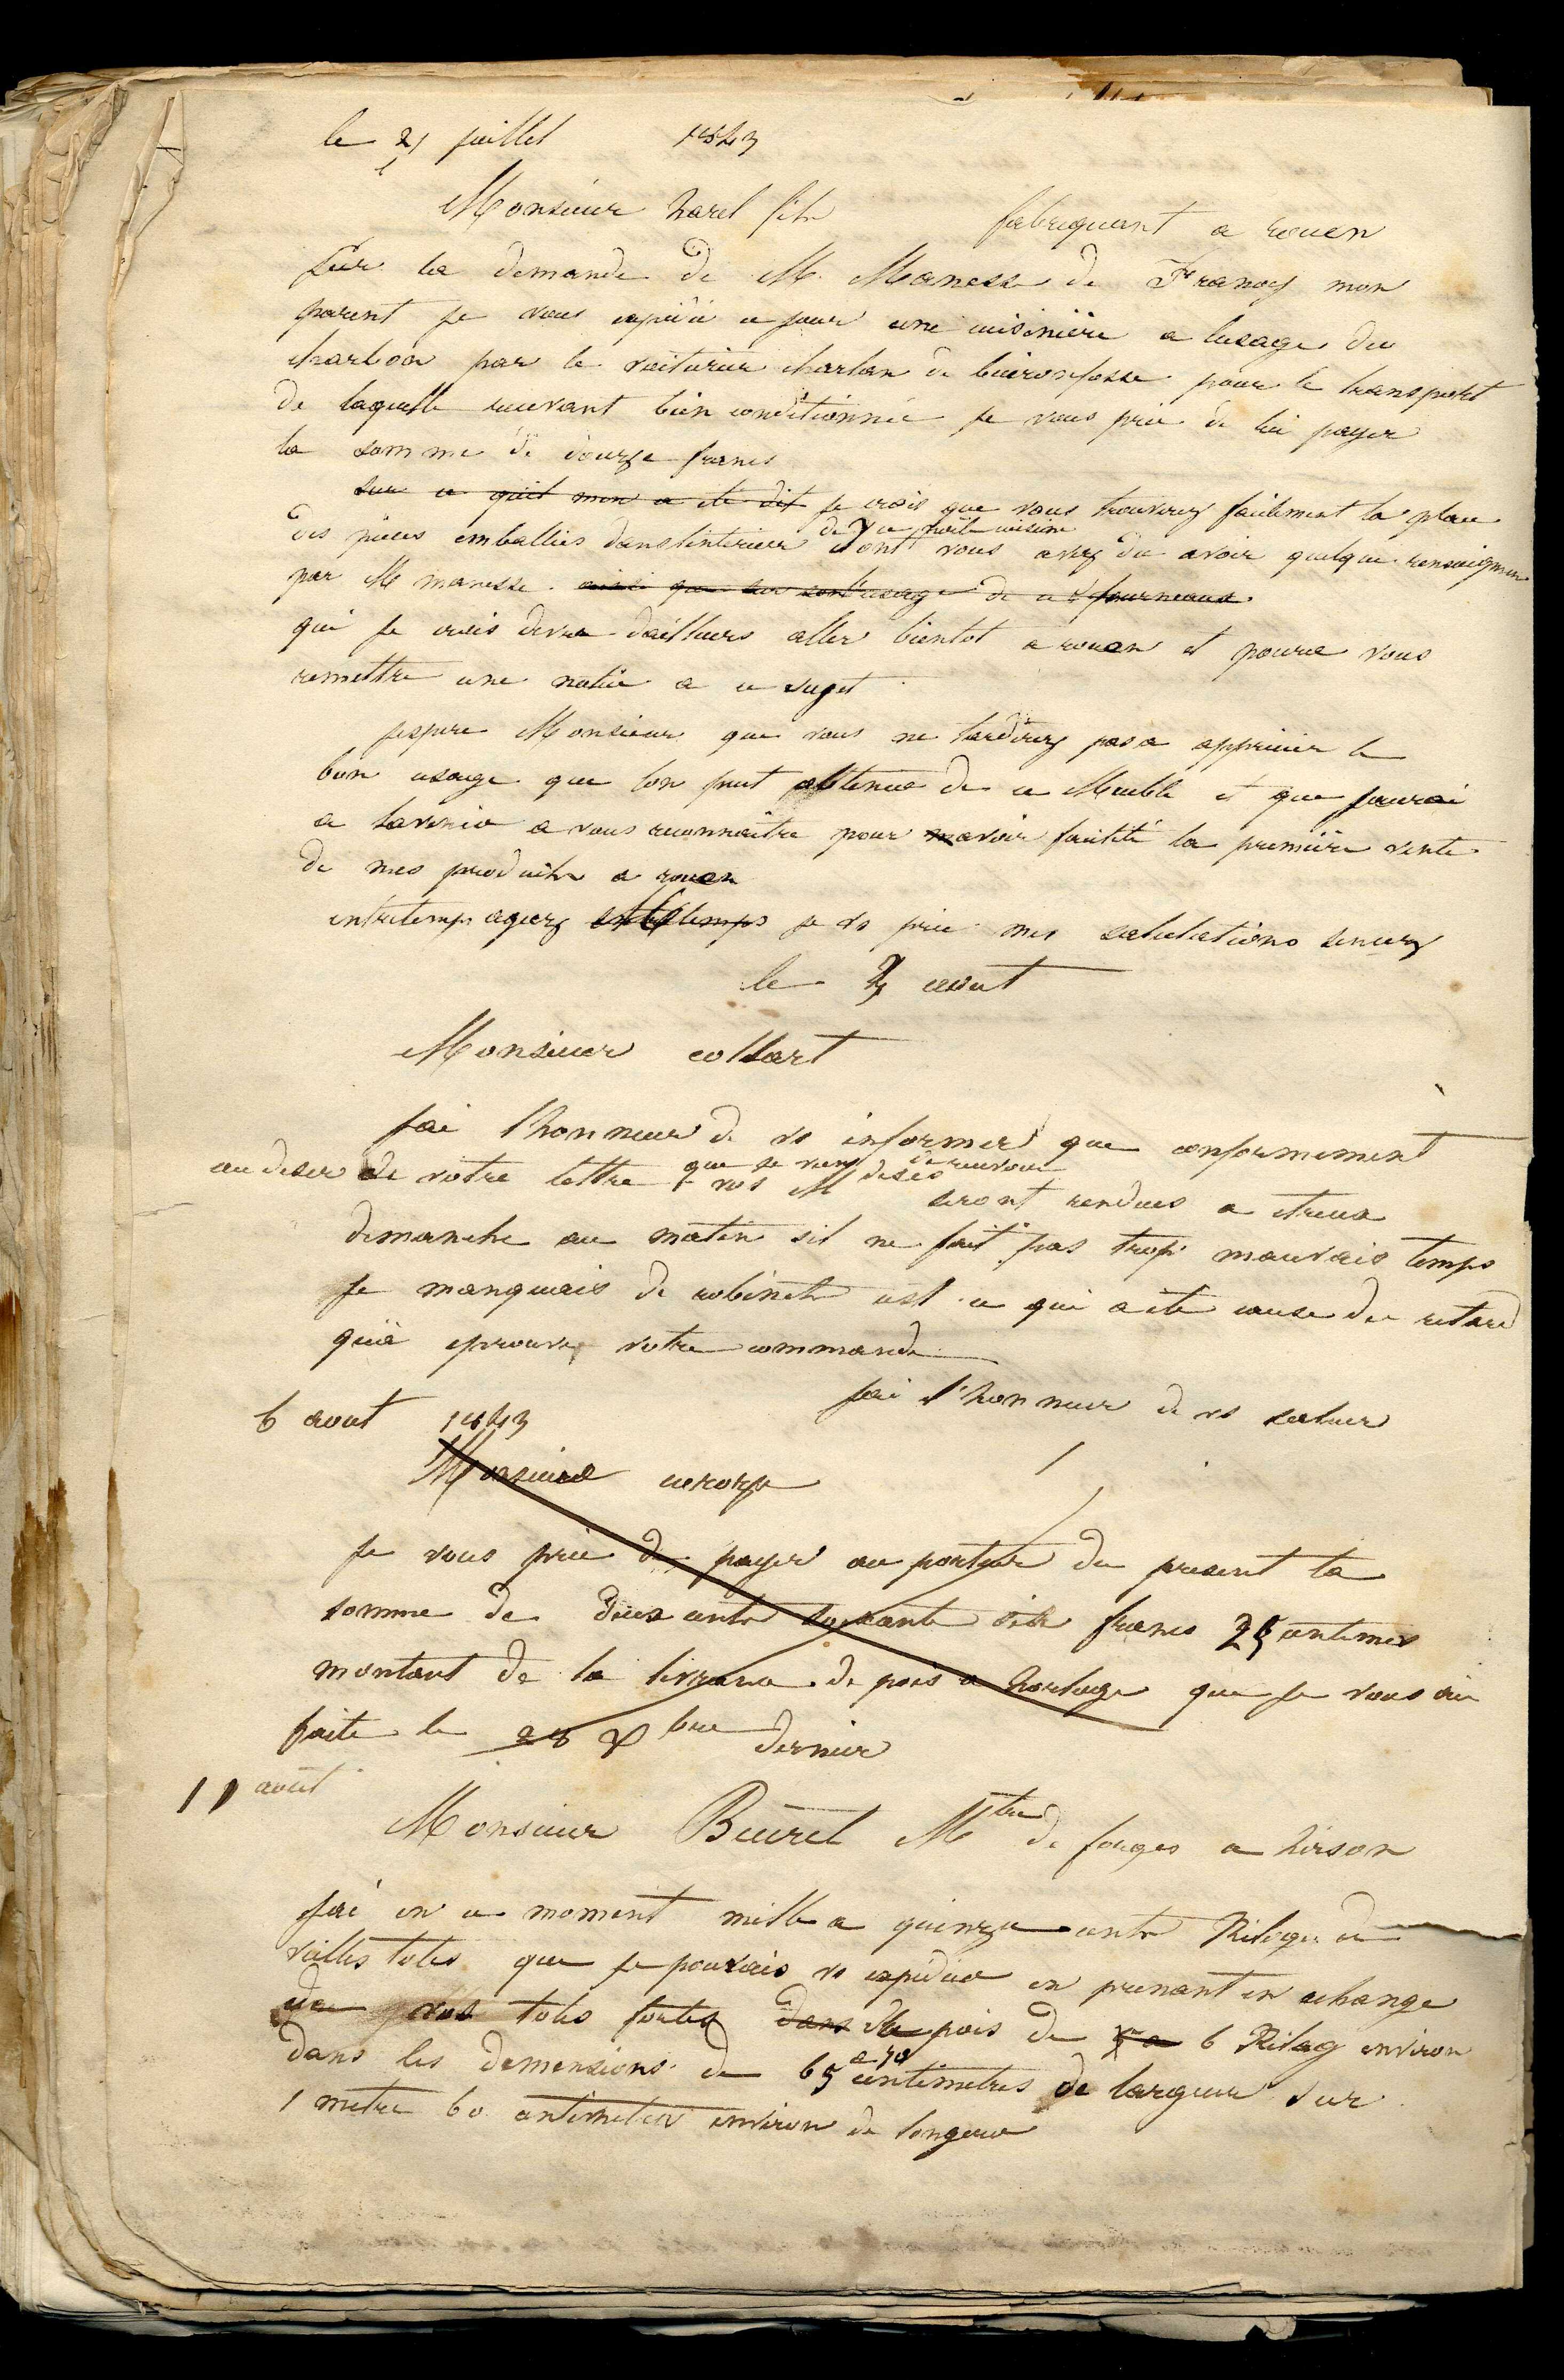 le 21 juillet 1843
Monsieur harel fils fabriquant a rouen
sur la demande de M. Manesse de Franoy mon
parent je vous expédie ce jour une cuisinière a lusage du
charbon par le voiturier charlan de buironfosse pour le transport
de laquelle recevant bien conditionnée je vous prie de lui payer
la somme de douze francs
sur ce qu'il men a ete dit je crois que vous trouverez facilement la place
de ce poële cuisine
des pieces emballées dans linterieur dont vous avez du avoir quelque renseignemen
par M manesse. ainsi que sur son usage de ce fourneaux.
qui je crois devra dailleurs aller bientot a rouen et poura vous
remettre une notice a ce suget
jespere Monsieur que vous ne tarderez pas a apprecier le
bon usage que lon peut obtenir de ce Meuble et que jaurai
a lavenir a vous reconnaitre pour mavoir facilité la première vente
de mes produits a rouen
entretemps agreez entretemps je vs prie mes salutations sincerz
le 3 aout
Monsieur collart
jai lhonneur de vs informer que conformement
que je viens de recevoir
au desir de votre lettre vos Mdises seront rendues a etreux
dimanche au matin sil ne fait pas trop mauvais temps
je manquais de robinets cest ce qui a ete cause du retard
qu'a eprouvé votre commande
jai l'honneur de vs saluer
6 aout 1843
Monsieur
je vous prie de payer au porteur du present la
somme de deux cents soixante dix francs 25 centimes
montant de la livrance de pois a houlage que je vous ai
faite le 28 Xbre dernier
11 aout
Monsieur Beurel Mtre de forges a hirson
jai en ce moment mille a quinze cents Kilog de
vielles toles que je pourais vs expedier en prenant en echange
de vos toles fortes dans de pois de 5 a 6 Kilog environ
a 70
dans les demensions de 65 centimetres de largeur sur
1 metre 60 centimetres environ de longeur